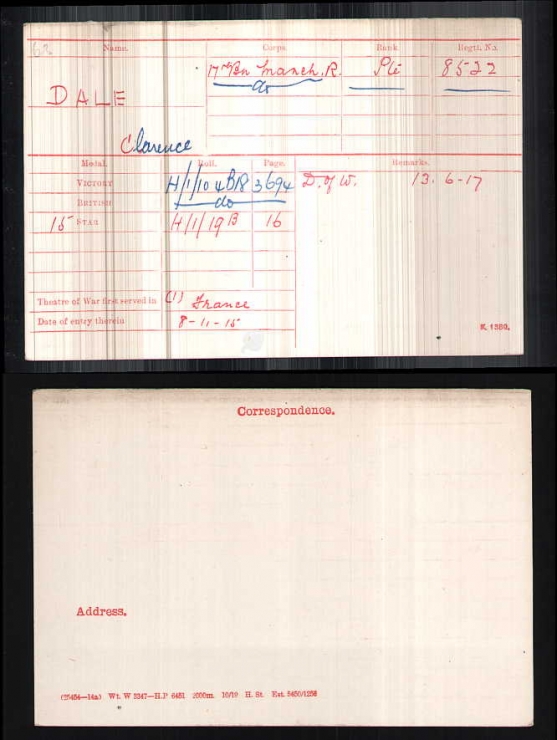 Name. Corps. Rank. Regtl. No.
DALE 17th Bn Manch. R. Pte 8522
do
Clarence
Medal. Roll. Page. Remarks.
VICTORY H/1/10 4B18 3694 D. of W. 13. 6-17
BRITISH do
15 STAR H/1/19 B 16
Theatre of War first served in (1) France
Date of entry therein 8-11-15
K. 1380.
Correspondence.
Address.
(25454—14a) Wt. W 5247—H.P 6481 2000m 10/19 H. St. Est.